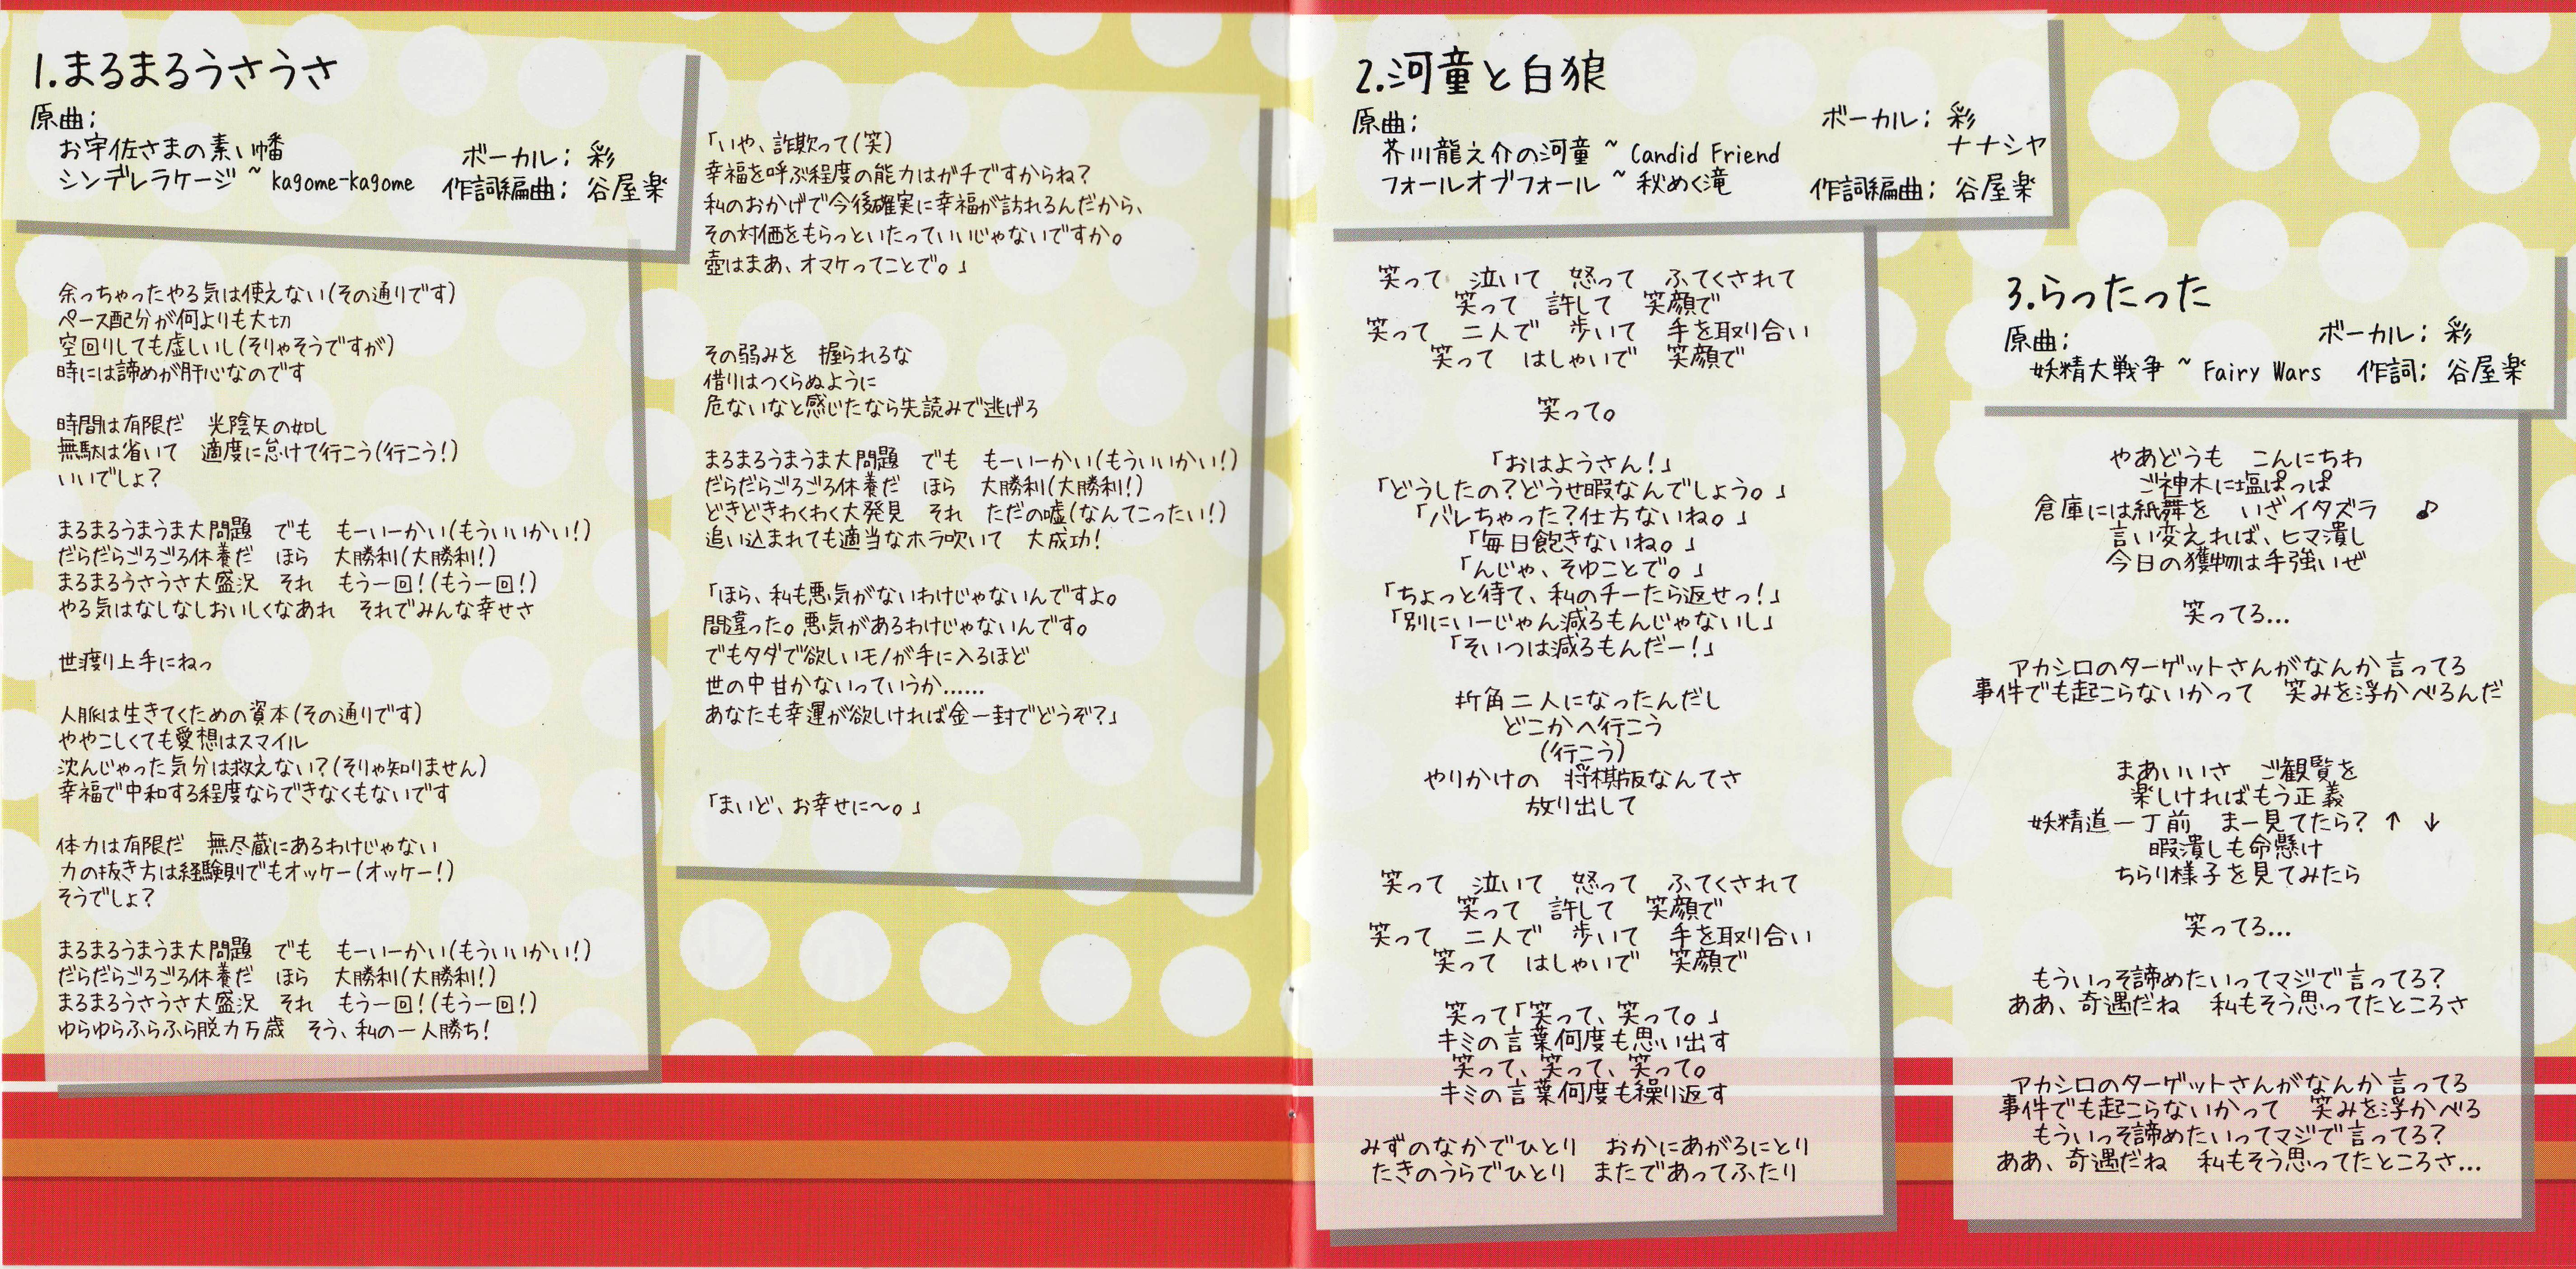 1.まるまるうさうさ
原曲:
お宇佐さまの素い幡
シンデレラケージ ~ kagome-kagome
ボーカル: 彩
作詞編曲: 谷屋楽
余っちゃったやる気は使えない(その通りです)
ペース配分が何よりも大切
空回りしても虚しいし(そりゃそうですが)
時には諦めが肝心なのです
時間は有限だ 光陰矢の如し
無駄は省いて 適度に怠けて行こう(行こう!)
いいでしょ?
まるまるうまうま大問題 でも もーいーかい(もういいかい!)
だらだらごろごろ休養だ ほら 大勝利(大勝利!)
まるまるうさうさ大盛況 それ もう一回!(もう一回!)
やる気はなしなしおいしくなあれ それでみんな幸せさ
世渡り上手にねっ
人脈は生きてくための資本(その通りです)
ややこしくても愛想はスマイル
沈んじゃった気分は救えない?(そりゃ知りません)
幸福で中和する程度ならできなくもないです
体力は有限だ 無尽蔵にあるわけじゃない
力の抜き方は経験則でもオッケー(オッケー!)
そうでしょ?
まるまるうまうま大問題 でも もーいーかい(もういいかい!)
だらだらごろごろ休養だ ほら 大勝利(大勝利!)
まるまるうさうさ大盛況 それ もう一回!(もう一回!)
ゆらゆらふらふら脱力万歳 そう、私の一人勝ち!
「いや、詐欺って(笑)
幸福を呼ぶ程度の能力はガチですからね?
私のおかげで今後確実に幸福が訪れるんだから、
その対価をもらっといたっていいじゃないですか。
壺はまあ、オマケってことで。」
その弱みを 握られるな
借りはつくらぬように
危ないなと感じたなら先読みで逃げろ
まるまるうまうま大問題 でも もーいーかい(もういいかい!)
だらだらごろごろ休養だ ほら 大勝利(大勝利!)
どきどきわくわく大発見 それ ただの嘘(なんてこったい!)
追い込まれても適当なホラ吹いて 大成功!
「ほら、私も悪気がないわけじゃないんですよ。
間違った。悪気があるわけじゃないんです。
でもタダで欲しいモノが手に入るほど
世の中甘かないっていうか……
あなたも幸運が欲しければ金一封でどうぞ?」
「まいど、お幸せに〜。」
2.河童と白狼
原曲:
芥川龍之介の河童 ~ Candid Friend
フォールオブフォール ~ 秋めく滝
ボーカル: 彩
ナナシヤ
作詞編曲: 谷屋楽
笑って 泣いて 怒って ふてくされて
笑って 許して 笑顔で
笑って 二人で 歩いて 手を取り合い
笑って はしゃいで 笑顔で
笑って。
「おはようさん!」
「どうしたの?どうせ暇なんでしょう。」
「バレちゃった?仕方ないね。」
「毎日飽きないね。」
「んじゃ、そゆことで。」
「ちょっと待て、私のチーたら返せっ!」
「別にいーじゃん減るもんじゃないし」
「そいつは減るもんだー!」
折角二人になったんだし
どこかへ行こう
(行こう)
やりかけの 将棋版なんてさ
放り出して
笑って 泣いて 怒って ふてくされて
笑って 許して 笑顔で
笑って 二人で 歩いて 手を取り合い
笑って はしゃいで 笑顔で
笑って「笑って、笑って。」
キミの言葉何度も思い出す
笑って、笑って、笑って。
キミの言葉何度も繰り返す
みずのなかでひとり おかにあがるにとり
たきのうらでひとり またであってふたり
3.らったった
原曲:
妖精大戦争 ~ Fairy Wars
ボーカル: 彩
作詞: 谷屋楽
やあどうも こんにちわ
ご神木に塩ぱっぱ
倉庫には紙舞を いざイタズラ ♪
言い変えれば、ヒマ潰し
今日の獲物は手強いぜ
笑ってる...
アカシロのターゲットさんがなんか言ってる
事件でも起こらないかって 笑みを浮かべるんだ
まあいいさ ご観覧を
楽しければもう正義
妖精道一丁前 まー見てたら? ↑ ↓
暇潰しも命懸け
ちらり様子を見てみたら
笑ってる...
もういっそ諦めたいってマジで言ってる?
ああ、奇遇だね 私もそう思ってたところさ
アカシロのターゲットさんがなんか言ってる
事件でも起こらないかって 笑みを浮かべる
もういっそ諦めたいってマジで言ってる?
ああ、奇遇だね 私もそう思ってたところさ...